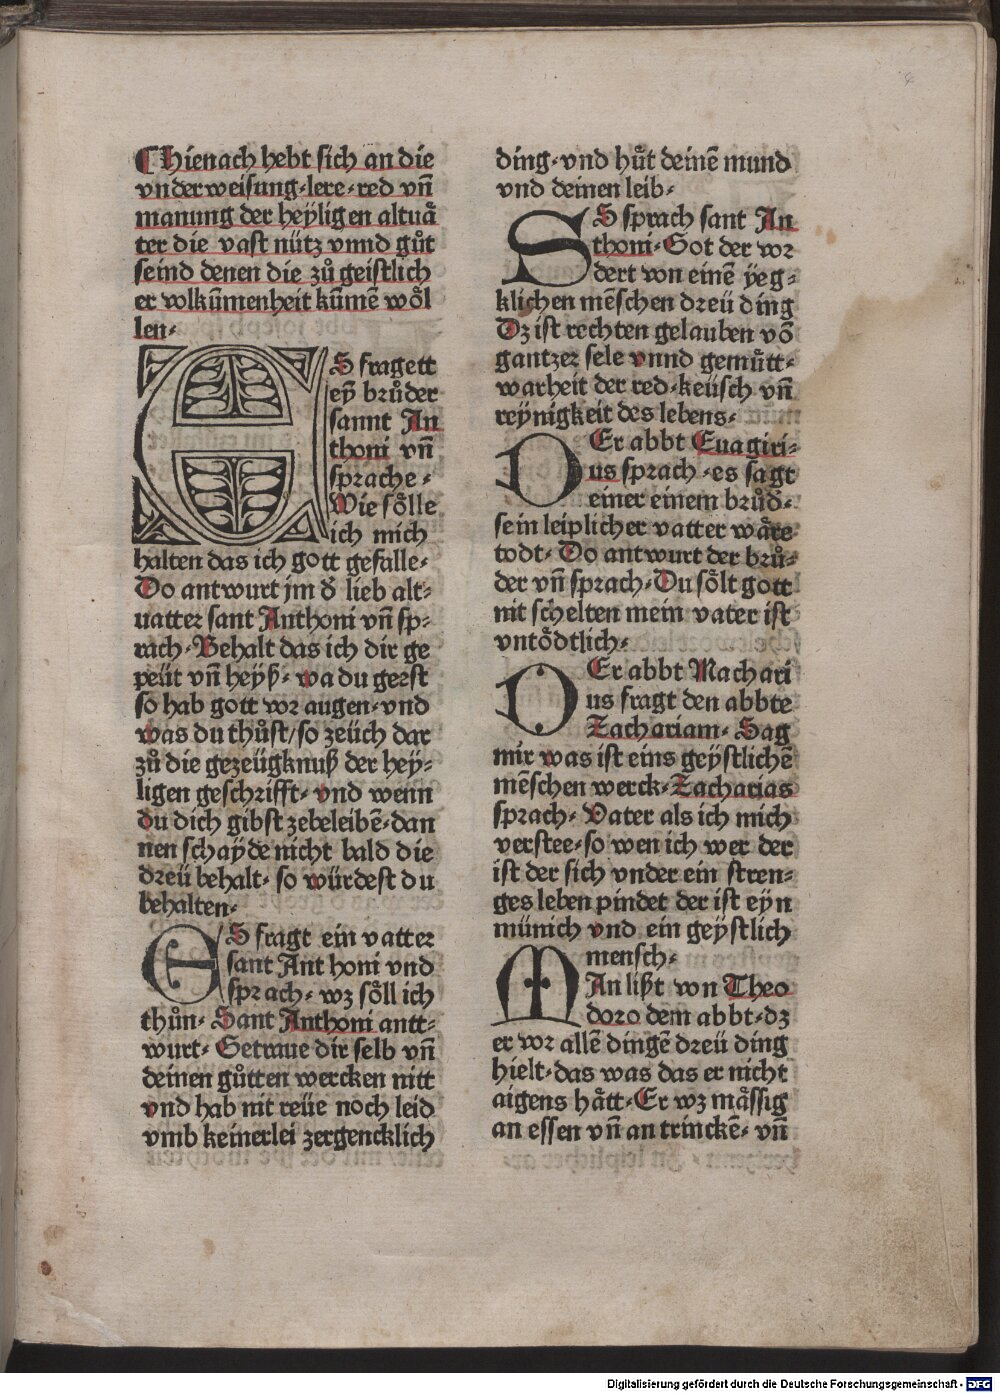 ¶ Hienach hebt sich an die
vnderweisung·lere·red vñ
manung der heyligen altuaͤ
ter die vast nütz vnnd guͦt
seind denen die zuͦ geistlich
er volkūmenheit kūmē woͤl
len·
ES fragett
eÿ bruͦder
sannt An
thoni vñ
sprache·
Wie soͤlle
ich mich
halten das ich gott gefalle·
Do antwurt jm ð lieb alt⸗
uatter sant Anthoni vñ sp⸗
rach·Behalt das ich dir ge
peüt vñ heyß· wa du geest
so hab gott vor augen·vnd
was du thuͦst/so zeüch dar
zuͦ die gezeügknuß der hey⸗
ligen geschrifft·vnd wenn
du dich gibst zebeleibē·dan
nen schayde nicht bald die
dreü behalt·so würdest du
behalten·
ES fragt ein vatter
sant Anthoni vnd
sprach·wz soͤll ich
thuͦn·Sant Anthoni antt⸗
wurt·Getraue dir selb vñ
deinen guͦtten wercken nitt
vnd hab nit reüe noch leid
vmb keinerlei zergencklich
ding·vnd huͤt deinē mund
vnd deinen leib·
ES sprach sant An
thoni·Got der vor
dert von einē yeg⸗
klichen mēschen dreü ding
Dz ist rechten gelauben vō
gantzer sele vnnd gemuͤtt⸗
warheit der red·keüsch vñ
reynigkeit des lebens·
DEr abbt Euagiri⸗
us sprach·es sagt
einer einem bruͦd⸗
sein leiplicher vatter waͤre
todt·Do antwurt der bruͦ⸗
der vñ sprach·Du soͤlt gott
nit schelten mein vater ist
vntoͤdtlich·
DEr abbt Machari
us fragt den abbte
Zachariam·Sag
mir was ist eins geystlichē
mēschen werck·Zacharias
sprach·Vater als ich mich
verstee·so wen ich wer der
ist der sich vnder ein stren⸗
ges leben pindet der ist eyn
münich vnd ein geystlich
mensch·
MAn lißt von Theo
doro dem abbt·dz
er vor allē dingē dreü ding
hielt·das was das er nicht
aigens haͤtt·Er wz maͤssig
an essen vñ an trinckē·vñ
Digitalisierung gefördert durch die Deutsche Forschungsgemeinschaft - DFG